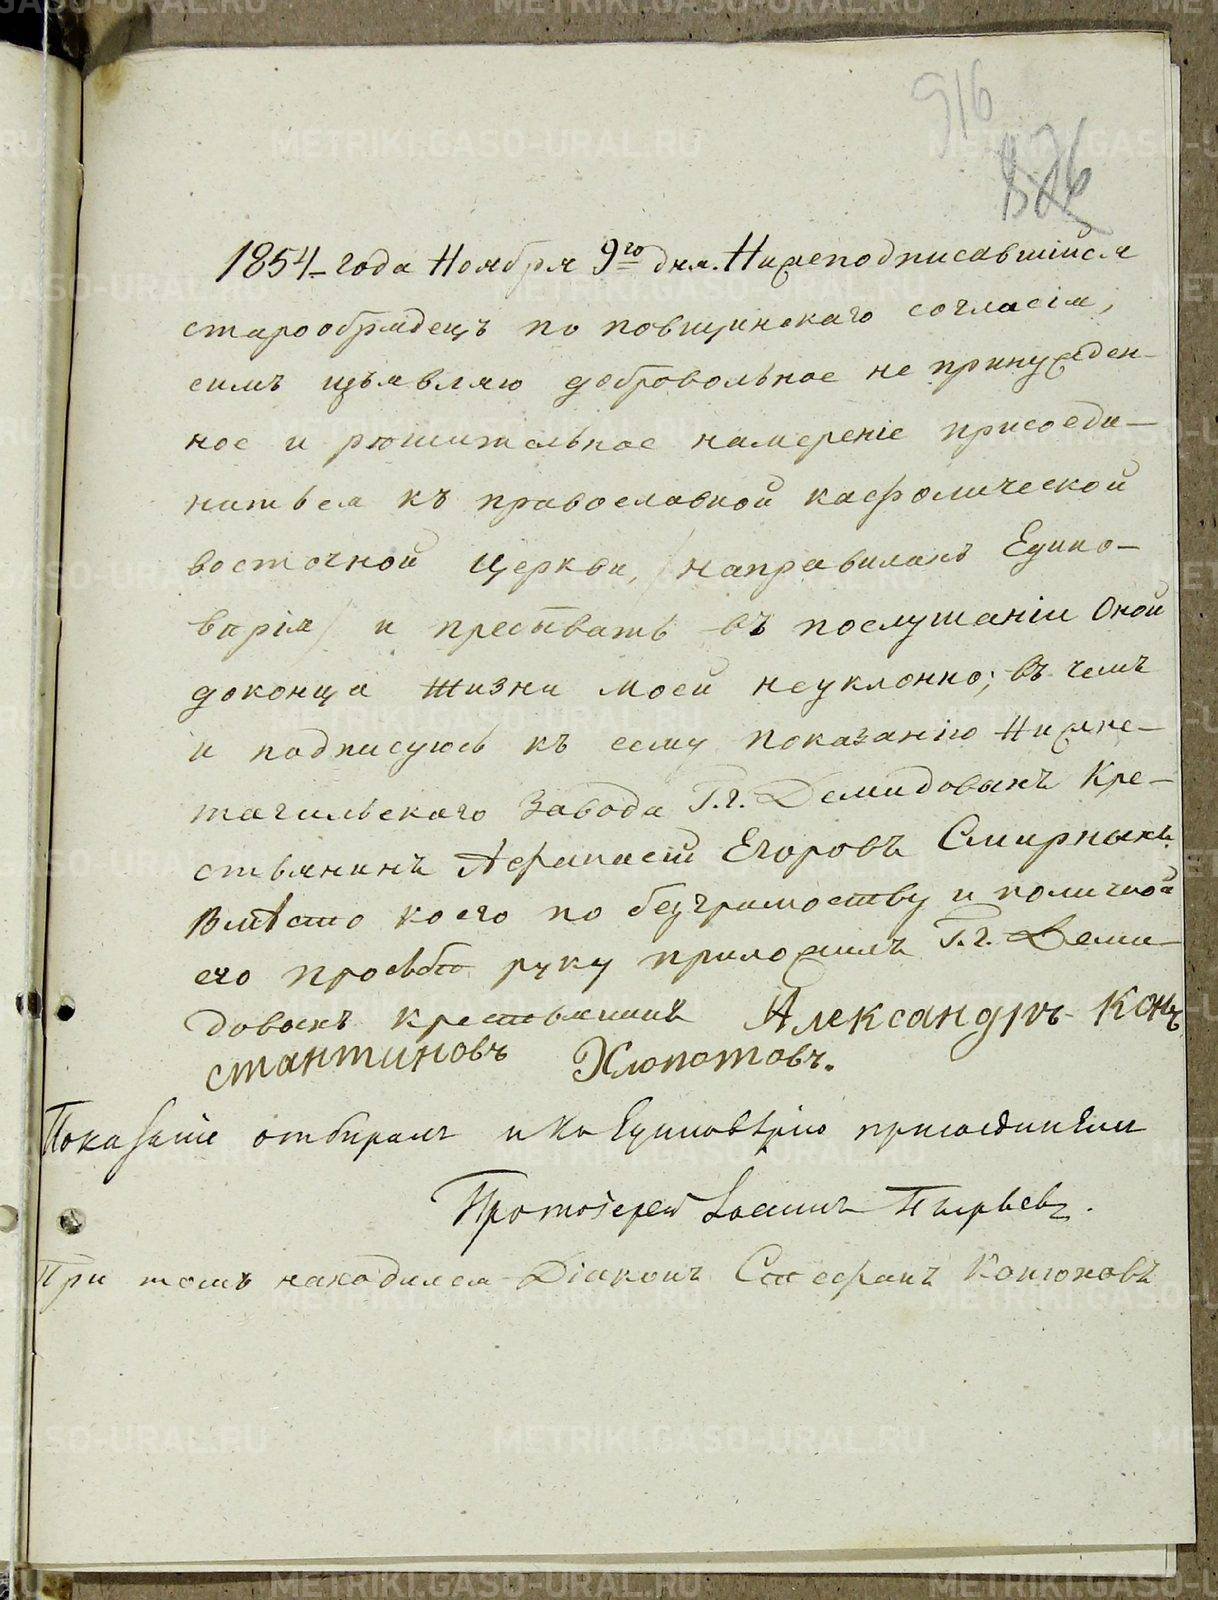 916
826
1854 года Ноября 9го дня. Нижеподписавшійся
старообрядецъ по повщинскаго согласія,
симъ изъявляю добровольное не принужден-
ное и рѣшительное намѣреніе присоеди-
нитьса къ православной кафолической
восточной Церкви, /направилахъ Едино-
вѣрія/ и пребывать въ послушаніи Оной
доконца Жизни моей неуклонно; въ чемъ
и подписуюсь къ сему показанію Нижне-
тагильскаго Завода Г.г. Демидовыхъ Кре-
стьянинъ Афанасій Егоровъ Смирныхъ.
Вмѣсто коего по безграмоству и поличной
его прозьбѣ руку приложилъ Г.г. Деми-
довыхъ крестьянинъ Александръ Кон-
стантиновъ Хлопотовъ.
Показаніе отбиралъ и къ Единовѣрію присоединялъ
Протоіерей Іоаннъ Пырьевъ.
При томъ находился Діаконъ Стефанъ Конюховъ
METRIKI.GASO-URAL.RU